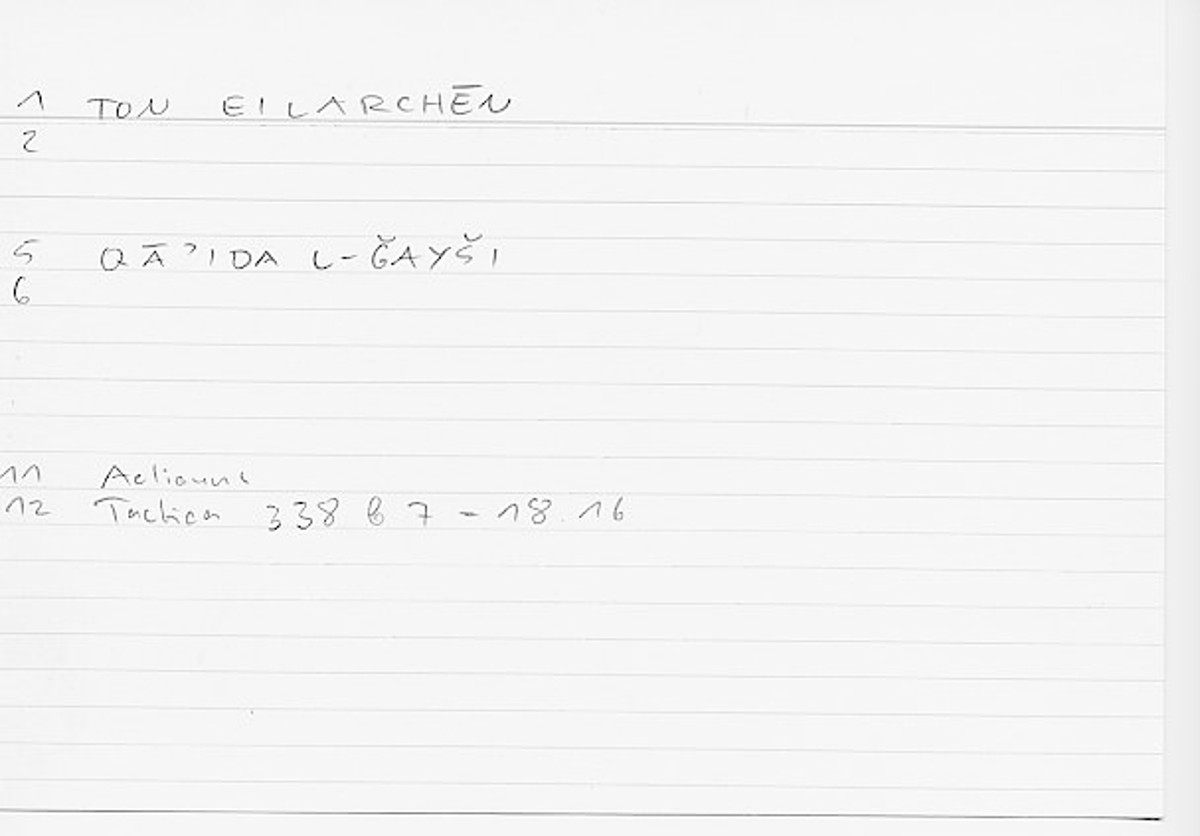 1 TON EILARCHĒN
2
5 QĀʾIDA L-ǦAYŠI
6
11 Aelianus
12 Tactica 338 b 7 - 18.16